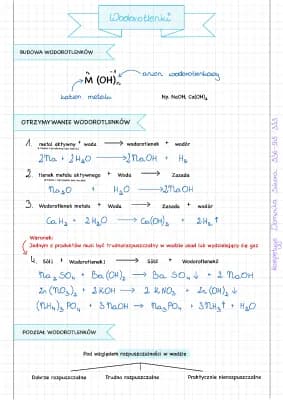 Wodorotlenki
BUDOWA WODOROTLENKÓW
M (OH)ₙ
anion wodorotlenkowy
kation metalu
Np. NaOH, Ca(OH)₂
OTRZYMYWANIE WODOROTLENKÓW
1. metal aktywny + woda → wodorotlenek + wodór
2Na + 2H₂O → 2NaOH + H₂
2. tlenek metalu aktywnego + Woda → Zasada
Na₂O + H₂O → 2NaOH
3. Wodorotlenek metalu + Woda → Zasada + wodór
CaH₂ + 2H₂O → Ca(OH)₂ + 2H₂↑
Warunek:
Jednym z produktów musi być trudnorozpuszczalny w wodzie osad lub wodzielający się gaz
4. Sól1 + Wodorotlenek1 → Sól2 + Wodorotlenek2
Na₂SO₄ + Ba(OH)₂ → BaSO₄↓ + 2NaOH
Zn(NO₃)₂ + 2KOH → 2KNO₃ + Zn(OH)₂↓
(NH₄)₃PO₄ + 3NaOH → Na₃PO₄ + 3NH₃↑ + H₂O
PODZIAŁ WODOROTLENKÓW
Pod względem rozpuszczalności w wodzie
Dobrze rozpuszczalne
Trudno rozpuszczalne
Praktycznie nierozpuszczalne